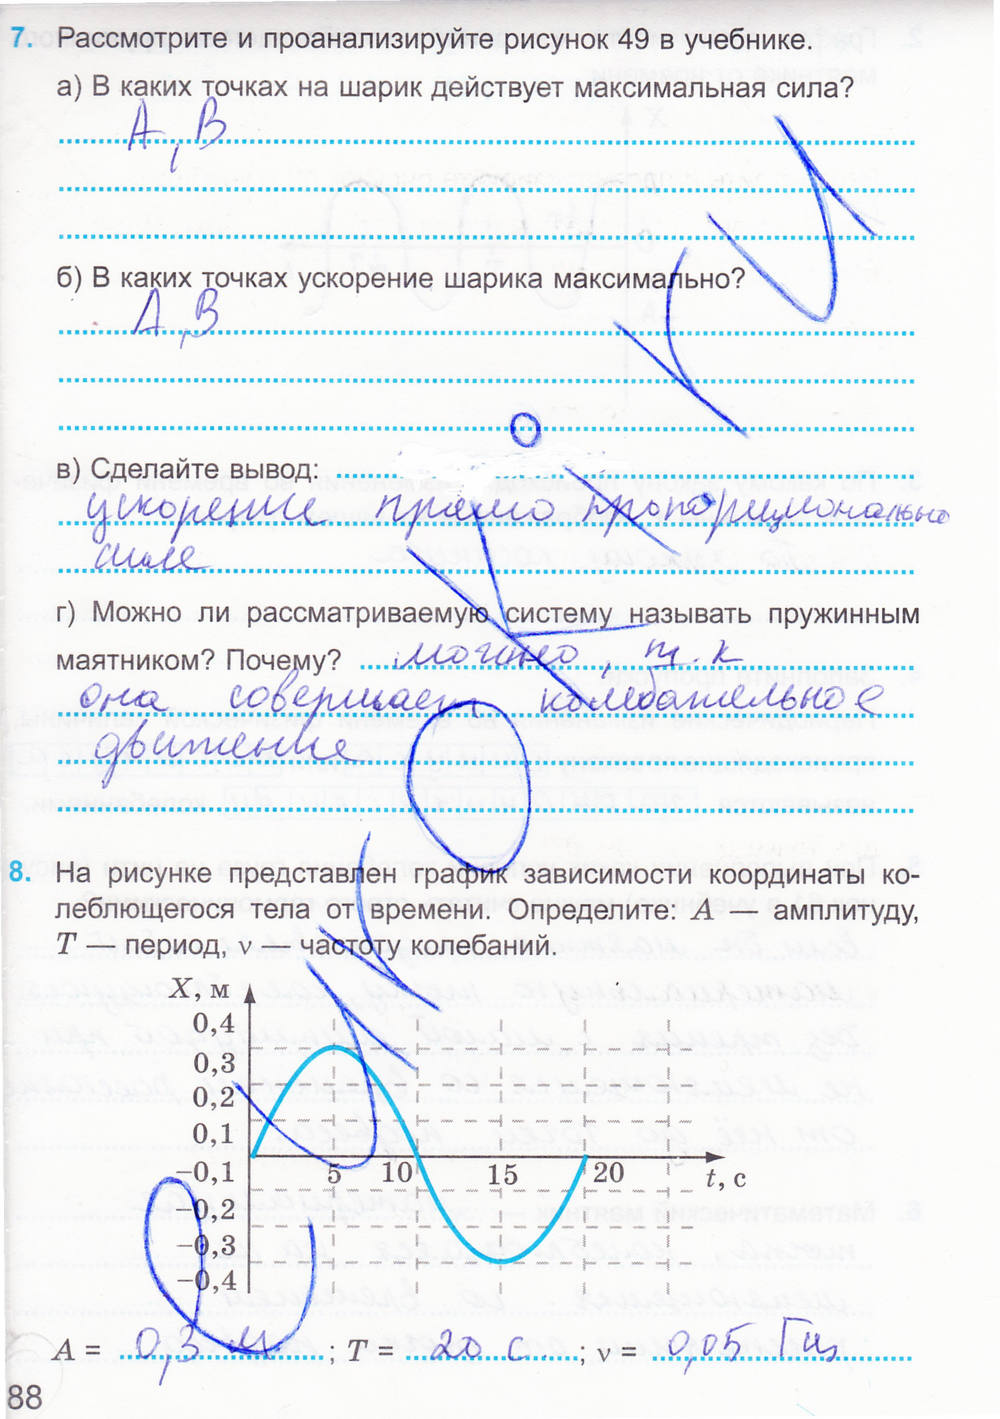 7. Рассмотрите и проанализируйте рисунок 49 в учебнике.
а) В каких точках на шарик действует максимальная сила?
А, В
б) В каких точках ускорение шарика максимально?
А, В
в) Сделайте вывод:
ускорение прямо пропорционально
силе
г) Можно ли рассматриваемую систему называть пружинным
маятником? Почему? можно, т.к
она совершает колебательное
движение
8. На рисунке представлен график зависимости координаты ко-
леблющегося тела от времени. Определите: A — амплитуду,
T — период, ν — частоту колебаний.
X, м
0,4
0,3
0,2
0,1
−0,1 5 10 15 20 t, с
−0,2
−0,3
−0,4
A = 0,3 м ; T = 20 с ; ν = 0,05 Гц
88